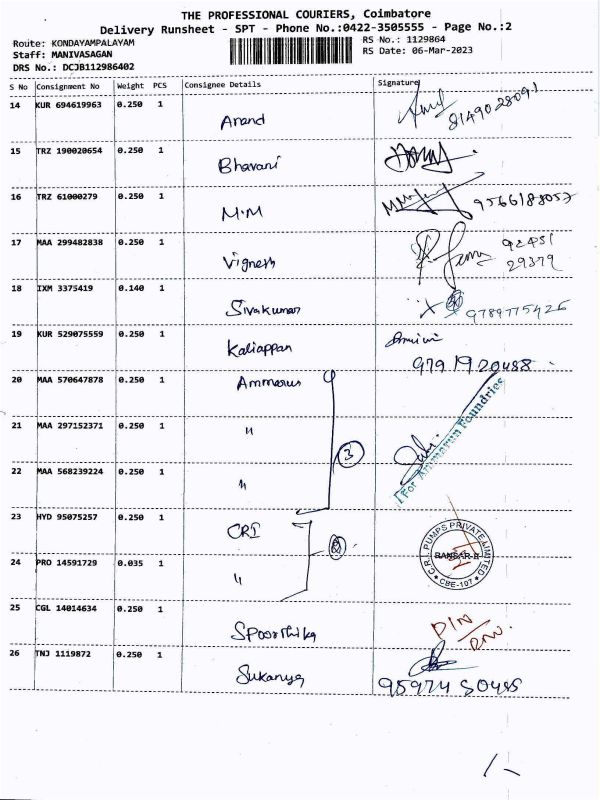 THE PROFESSIONAL COURIERS, Coimbatore
Delivery Runsheet - SPT - Phone No.:0422-3505555 - Page No.:2
Route: KONDAYAMPALAYAM
Staff: MANIVASAGAN
DRS No.: DCJB112986402
RS No.: 1129864
RS Date: 06-Mar-2023
S No Consignment No Weight PCS Consignee Details Signature
14 KUR 694619963 0.250 1 Anand 8149028091
15 TRZ 190020654 0.250 1 Bhavani
16 TRZ 61000279 0.250 1 M.M 9566188057
17 MAA 299482838 0.250 1 Vignesh 92451
29379
18 IXM 3375419 0.140 1 Sivakumar 9789775426
19 KUR 529075559 0.250 1 Kaliappan
9791920488
20 MAA 570647878 0.250 1 Ammarun
21 MAA 297152371 0.250 1 "
3
For Ammarun Foundries
22 MAA 568239224 0.250 1 "
23 HYD 95075257 0.250 1 CRI
C.R.I. PUMPS PRIVATE LIMITED
CBE-107
24 PRO 14591729 0.035 1 "
25 CGL 14014634 0.250 1 Spoorthika
26 TNJ 1119872 0.250 1 Sukanya
95974 50485